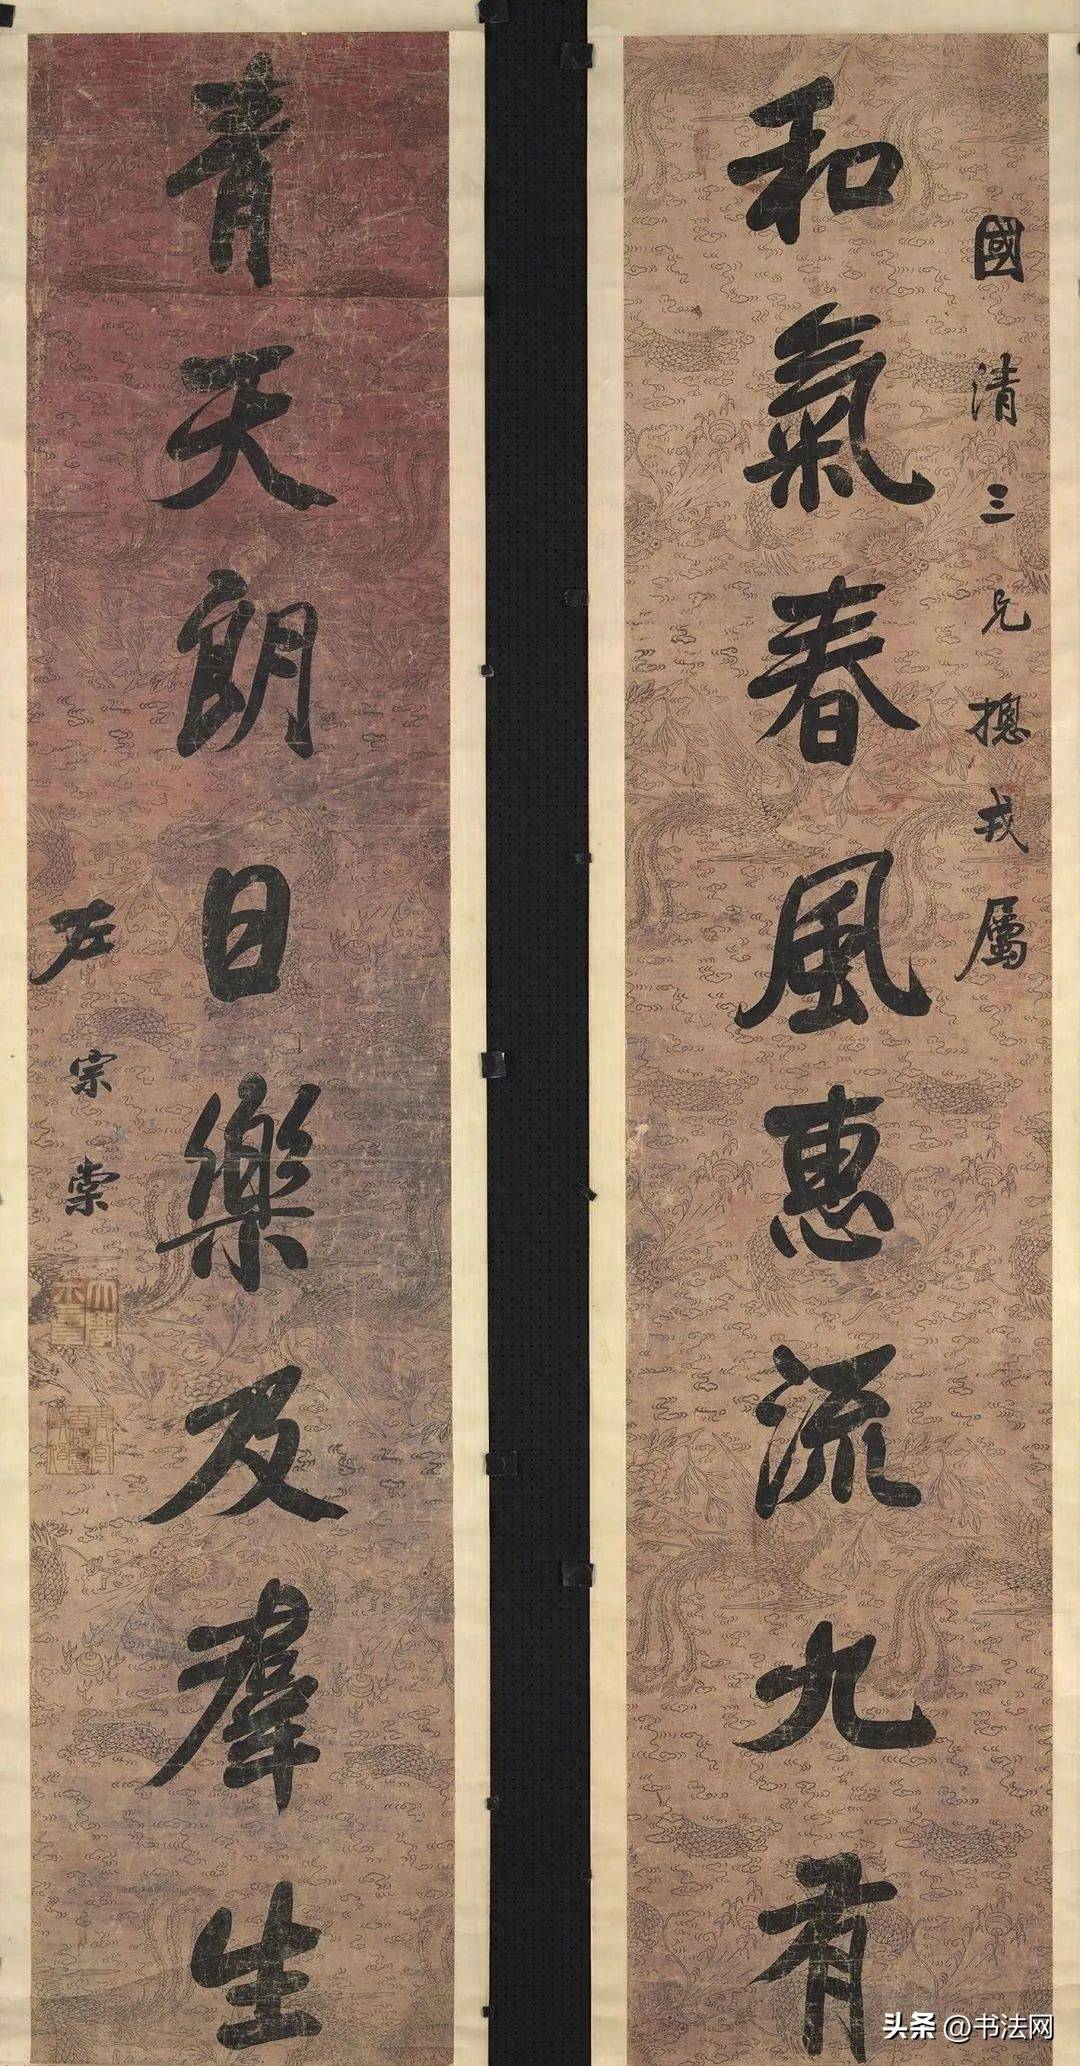 國清三兄摠戎屬
和氣春風惠流九有
青天朗日樂及羣生
左宗棠
头条 @书法网